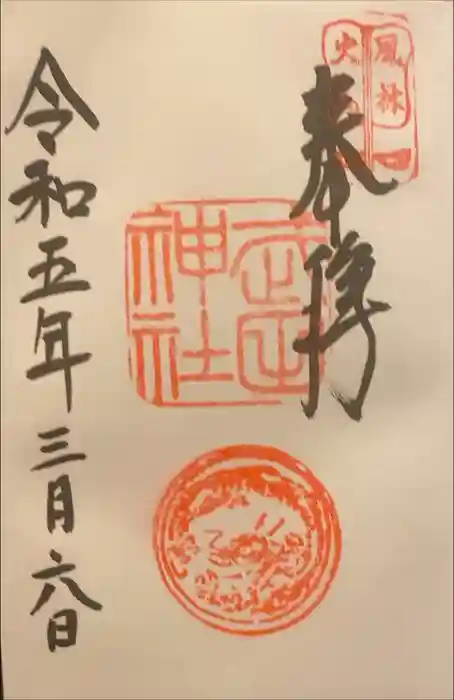 風林
火
奉拝
武田
神社
令和五年三月六日